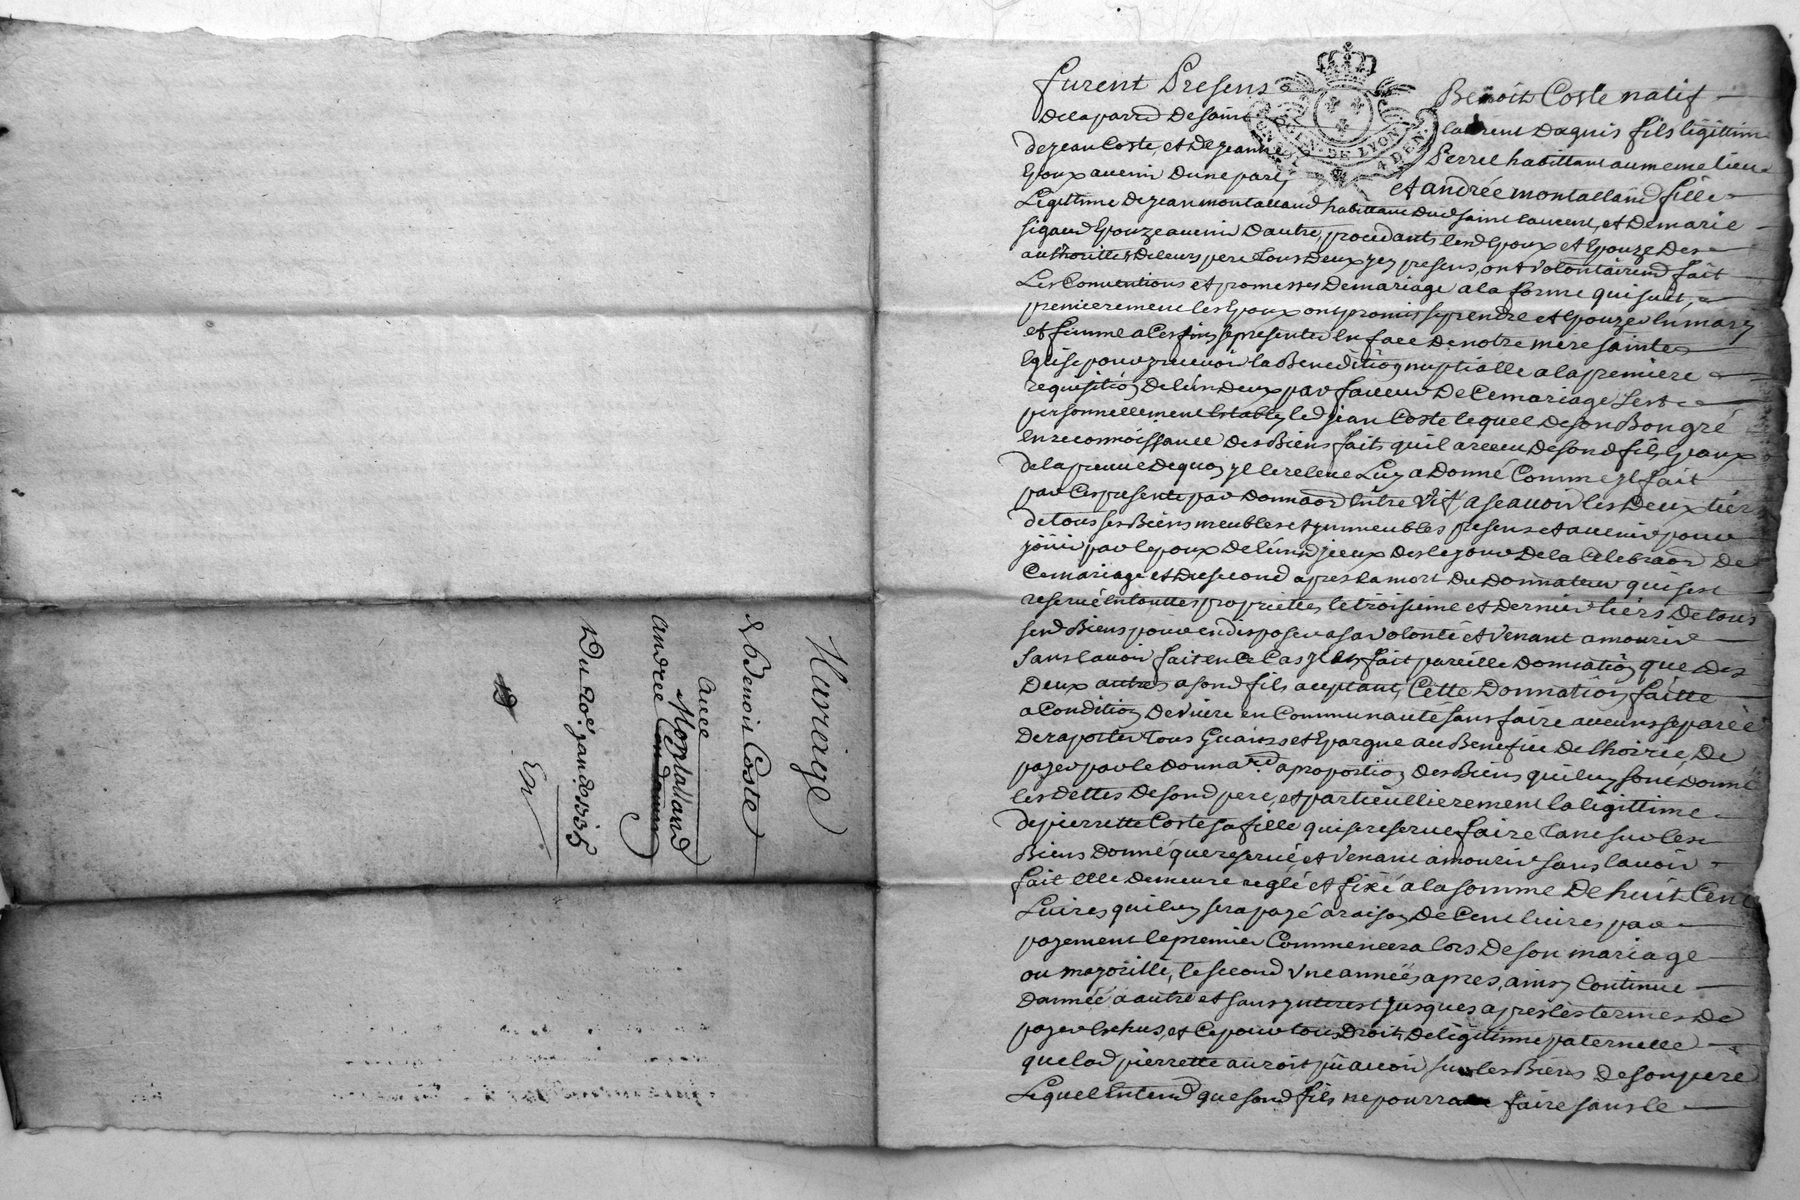 Mariage
de benoit Coste
avec
Montalland
andrée
Du 20e jan. 1735
furent Presens Benoit Coste natif
delaparr.d Desaint laurent Dagnis fils legittime
dejean Coste, et De jeanne Perret habittant aumeme lieu
Epoux avenir Dunepart, et andrée montalland fille
Legittime Dejean montalland habittant dud saint laurent, et Demarie
sigaud Epouze avenir Dautre, procedants lesd Epoux et Epouze Des
authorittés Deleurs pere tous Deux yci presens, ont volontairem.d fait
Les Conventions et promesses Demariage a la forme qui suit,
premierement les Epoux ont promis se prendre et Epouzer En mary
et femme a Ces fins se presenter En face De notre mere sainte
Eglise pour y recevoir la Benediction nuptialle a la premiere
requisition De lun Deux par faveur De Ce mariage sest
personnellement Estably led jean Coste lequel De son Bon gré
En reconnoissance Des Biens faits quil a receu De sond fils Epoux
de la preuve Dequoy yl le releve Luy a Donné Comme yl fait
par Ces presente par Donnaon Entre vif, a scavoir les Deux tiers
de tous ses Biens meubles et ynmeubles presens et avenir pour
jouir par lepoux De lun dyceux Des le jour De la Celebraon De
Ce mariage et Du second apres la mort Du Donnateur qui sest
reservé En touttes proprietteś le troisieme et Dernier tiers De tous
sesd Biens pour en disposer a sa volonté et venant a mourir
sans lavoir fait en Ce Cas yl En fait pareille Donnation que Des
Deux autres a sond fils aceptant, Cette Donnation faitte
a Condition De vivre en Communauté sans faire aucuns separée
De raporter tous Guains et Epargne au Benefice De lhoirie, De
payer par le Donna.re a proportion Des Biens qui luy sont Donné
les dettes De sond pere, et particullierement la legittime
de pierrette Coste sa fille qui se reserve faire tant sur les
Biens Donné que reservé et venant a mourir sans lavoir
fait Elle Demeure reglé et fixé a la somme De huit Cent
Livres qui luy sera payé a raison De Cent livres par
payement le premier Commencera lors De son mariage
ou majoritté, le second vne année apres, ainsy Continue
Dannée a autre et sans ynterest jusques apres les termes De
payer Echus, et Ce pour tous Droits De legitime paternelle
que lad pierrette auroit pu avoir sur les Biens De son pere
Lequel Entend que sond fils ne pourra faire sans le